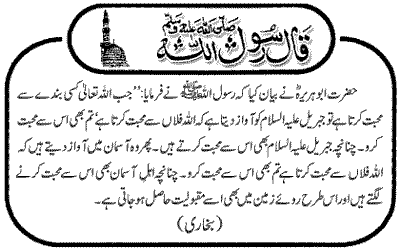 قال رسول اللہ صلی اللہ علیہ وسلم
حضرت ابو ہریرہؓ نے بیان کیا کہ رسول اللہ ﷺ نے فرمایا: ’’جب اللہ تعالیٰ کسی بندے سے
محبت کرتا ہے تو جبریل علیہ السلام کو آواز دیتا ہے کہ اللہ فلاں سے محبت کرتا ہے‘ تم بھی اس سے محبت
کرو۔ چنانچہ جبریل علیہ السلام بھی اس سے محبت کرتے ہیں۔ پھر وہ آسمان میں آواز دیتے ہیں کہ
اللہ فلاں سے محبت کرتا ہے تم بھی اس سے محبت کرو۔ چنانچہ اہل آسمان بھی اس سے محبت کرنے
لگتے ہیں اور اس طرح روئے زمین میں بھی اسے مقبولیت حاصل ہو جاتی ہے۔
(بخاری)